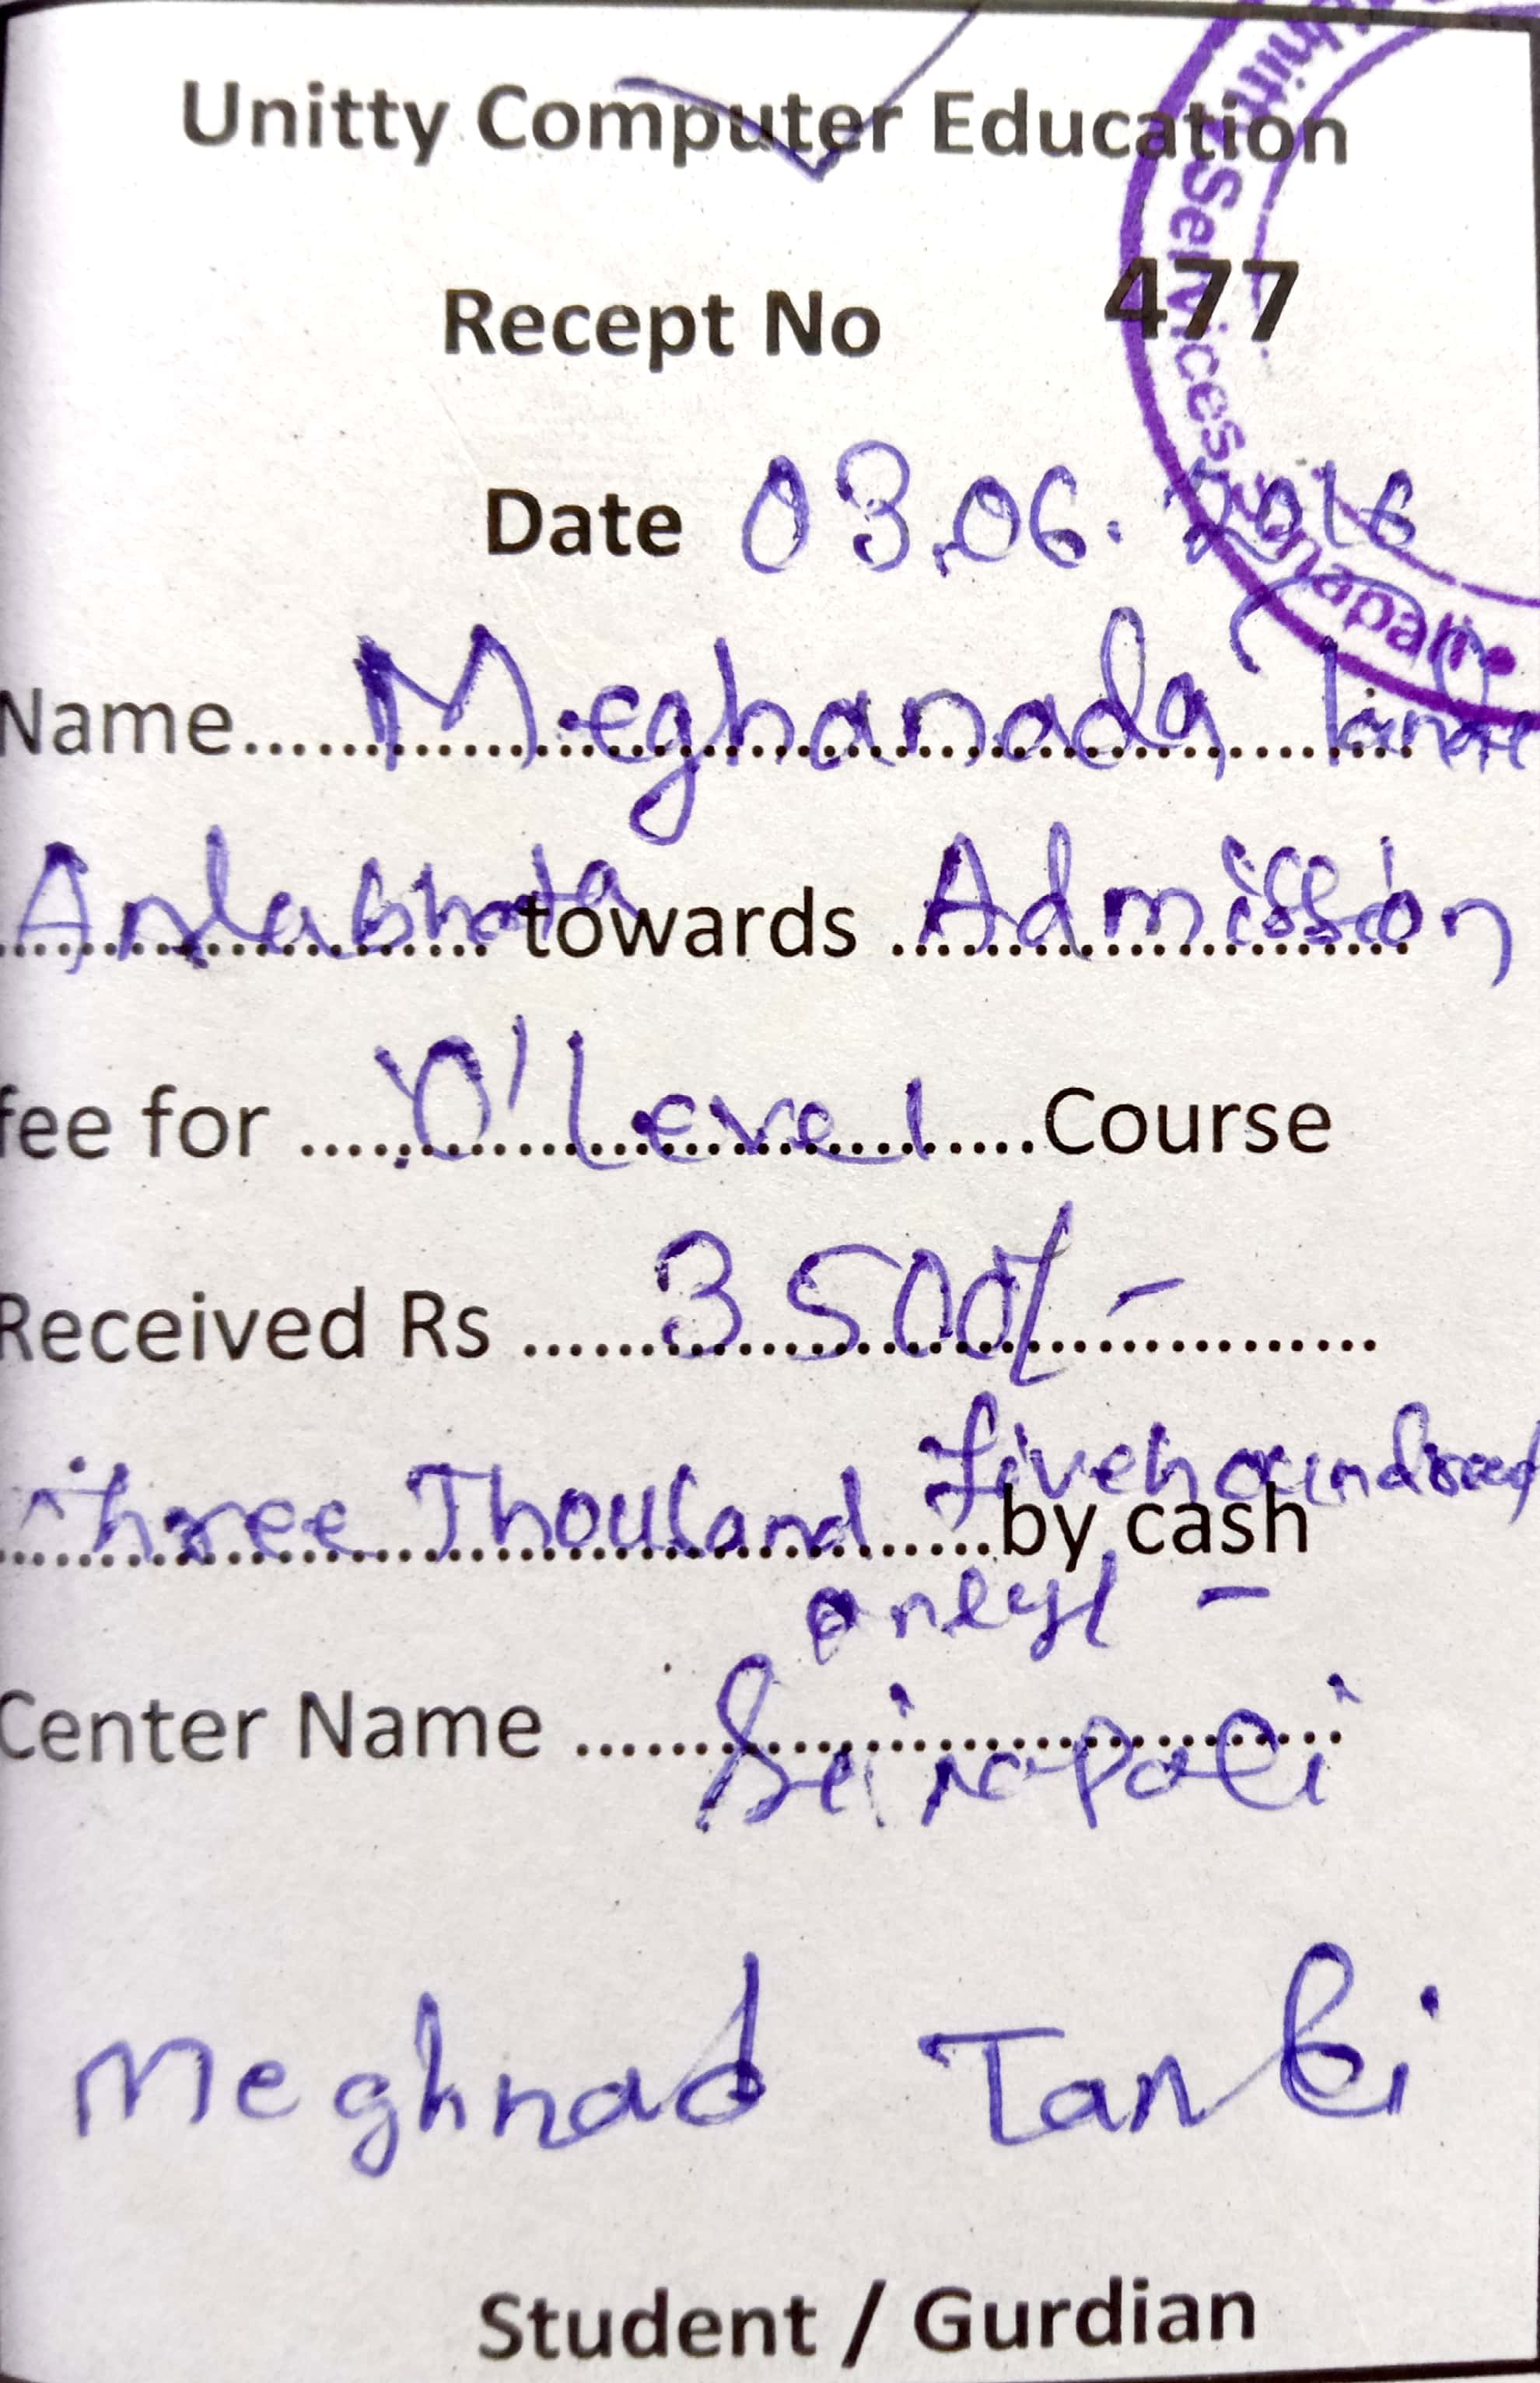 Unitty Computer Education
Recept No 477
Date 03.06.2016
Name.......Meghanada
towards Admission
fee for ....'O' Level....Course
Received Rs ....3500/-....
Three Thousand Fivehoundred
.....by cash
only/-
Center Name ....
Meghnad Tandi
Student / Gurdian
Unitty Services